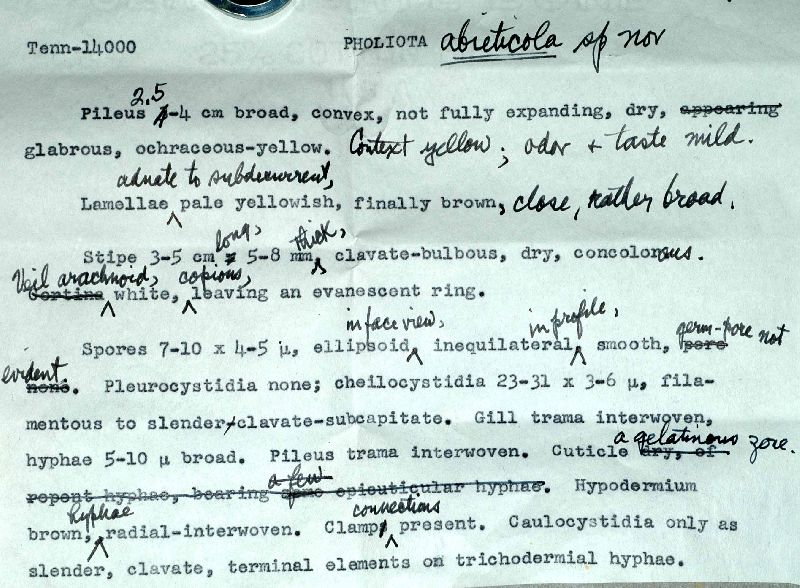 Tenn-14000 PHOLIOTA abieticola sp nov
2.5
Pileus 1-4 cm broad, convex, not fully expanding, dry, appearing
glabrous, ochraceous-yellow. Context yellow; odor + taste mild.
adnate to subdecurrent,
Lamellae pale yellowish, finally brown, close, rather broad.
long, thick,
Stipe 3-5 cm x 5-8 mm, clavate-bulbous, dry, concolorous.
Veil arachnoid, copious,
Cortina white, leaving an evanescent ring.
in face view, in profile, germ-pore not
Spores 7-10 x 4-5 μ, ellipsoid, inequilateral, smooth, pore
evident
none. Pleurocystidia none; cheilocystidia 23-31 x 3-6 μ, fila-
mentous to slender-clavate-subcapitate. Gill trama interwoven,
a gelatinous zone.
hyphae 5-10 μ broad. Pileus trama interwoven. Cuticle dry, of
a few
repent hyphae, bearing some epicuticular hyphae. Hypodermium
hyphae connections
brown, radial-interwoven. Clamps present. Caulocystidia only as
slender, clavate, terminal elements on trichodermial hyphae.